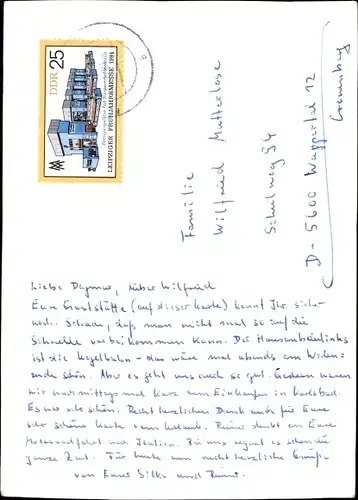 DDR 25
LEIPZIGER FRÜHJAHRSMESSE 1984
Familie
Wilfried Mutterlose
Schulweg 34
D - 5600 Wuppertal 12
Cronenberg
Liebe Dagmar, lieber Wilfried
Eure Gaststätte (auf dieser Karte) kennt Ihr sicher
noch. Schade, daß man nicht mal so auf die
Schnelle vorbeikommen kann. Das links
ist die Kegelbahn - das wäre mal abends am Wochen-
ende schön. Aber es geht uns auch so gut. Gestern waren
wir nachmittags mal kurz zum Einkaufen in Karlsbad.
Es war sehr schön. Recht herzlichen Dank auch für Eure
sehr schöne Karte vom Urlaub. Reiner denkt an Eure
fahrt nach Italien. Bei uns regnet es schon die
ganze Zeit. Für heute nun recht herzliche Grüße
von Euren Silke und Reiner.